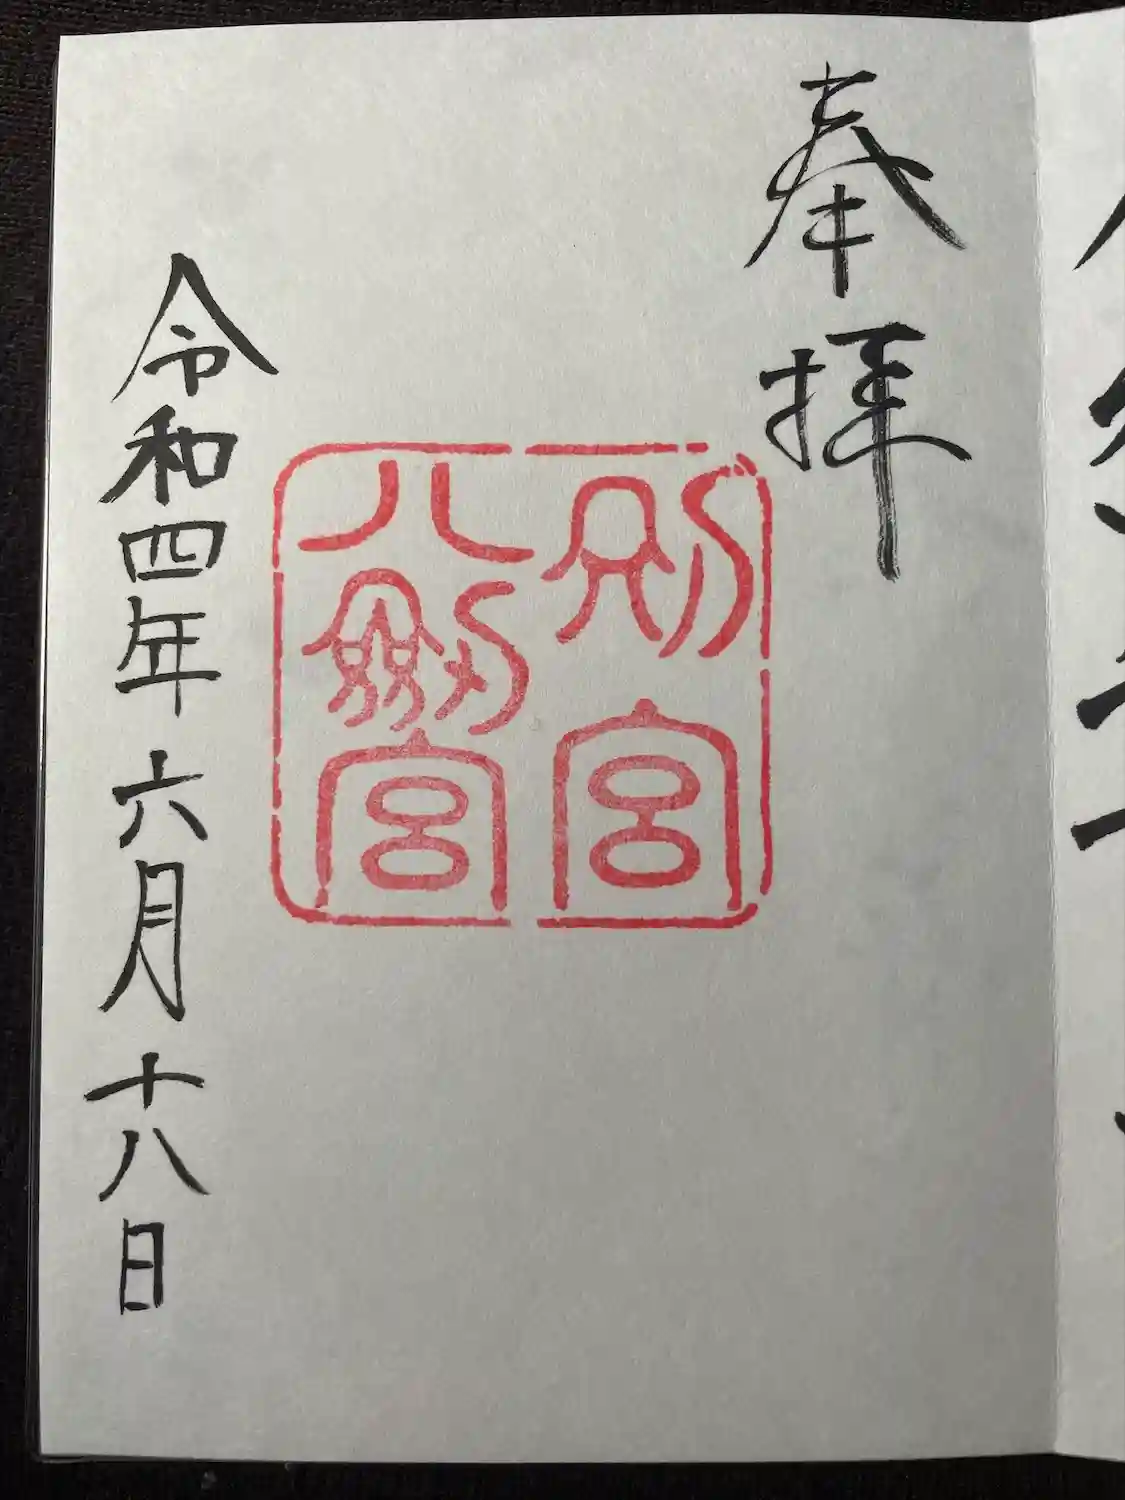 奉拝
別宮
八剣宮
令和四年六月十八日